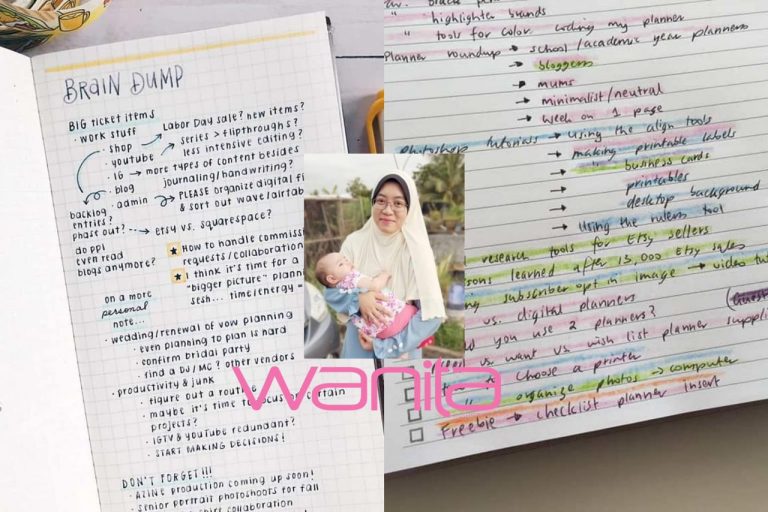 BRAIN DUMP
BIG TICKET ITEMS
· WORK STUFF
· SHOP
· YOUTUBE
· IG → MORE TYPES OF CONTENT BESIDES
JOURNALING/HANDWRITING?
· BLOG
· ADMIN
LABOR DAY SALE? NEW ITEMS?
SERIES > FLIPTHROUGHS?
LESS INTENSIVE EDITING?
PLEASE ORGANIZE DIGITAL
& SORT OUT WAVE/
BACKLOG
ENTRIES?
PHASE OUT? → ETSY VS. SQUARESPACE?
DO PPL
EVEN READ
BLOGS ANYMORE?
HOW TO HANDLE
REQUESTS/
I THINK IT'S TIME FOR A
"BIGGER PICTURE"
SESH... TIME/ENERGY
ON A MORE
PERSONAL
NOTE...
· WEDDING/RENEWAL OF VOW PLANNING
· EVEN PLANNING TO PLAN IS HARD
· CONFIRM BRIDAL PARTY
· FIND A DJ/MC? OTHER VENDORS
· PRODUCTIVITY & JUNK
· FIGURE OUT A
· MAYBE IT'S TIME TO FOCUS ON CERTAIN
PROJECTS?
· IGTV & YOUTUBE REDUNDANT?
· START MAKING DECISIONS!
DON'T FORGET!!!
· AZINE PRODUCTION COMING UP SOON!
· SENIOR PORTRAIT PHOTOSHOOTS FOR FALL
COLLABORATION
" highlighter brands
" tools for color coding my planner
Planner roundup → school/academic year planners
→ bloggers
→ mums
→ minimalist/neutral
→ week on 1 page
Photoshop tutorials → using the align tools
→ making printable labels
→ " business cards
→ printables
→ desktop background
→ using the rulers tool
research tools for Etsy sellers
learned after 15,000 Etsy sales
subscriber opt in image → video
vs. digital planners
you use 2 planners?
vs want vs wish list planner
choose a printer
" organize photos → computer
Freebie → checklist planner insert
wanita